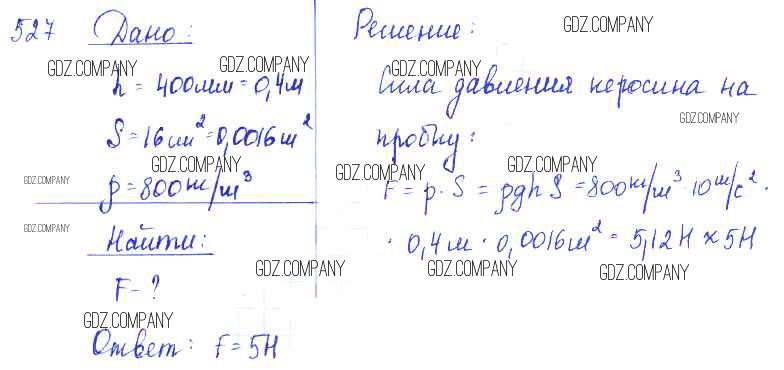 527 Дано:
h = 400мм = 0,4м
S = 16см² = 0,0016м²
ρ = 800кг/м³
Найти:
F - ?
Ответ: F = 5Н
Решение:
Сила давления керосина на
пробку:
F = p · S = ρghS = 800кг/м³ · 10м/с² ·
· 0,4м · 0,0016м² = 5,12Н ≈ 5Н
GDZ.COMPANY
GDZ.COMPANY
GDZ.COMPANY
GDZ.COMPANY
GDZ.COMPANY
GDZ.COMPANY
GDZ.COMPANY
GDZ.COMPANY
GDZ.COMPANY
GDZ.COMPANY
GDZ.COMPANY
GDZ.COMPANY
GDZ.COMPANY
GDZ.COMPANY